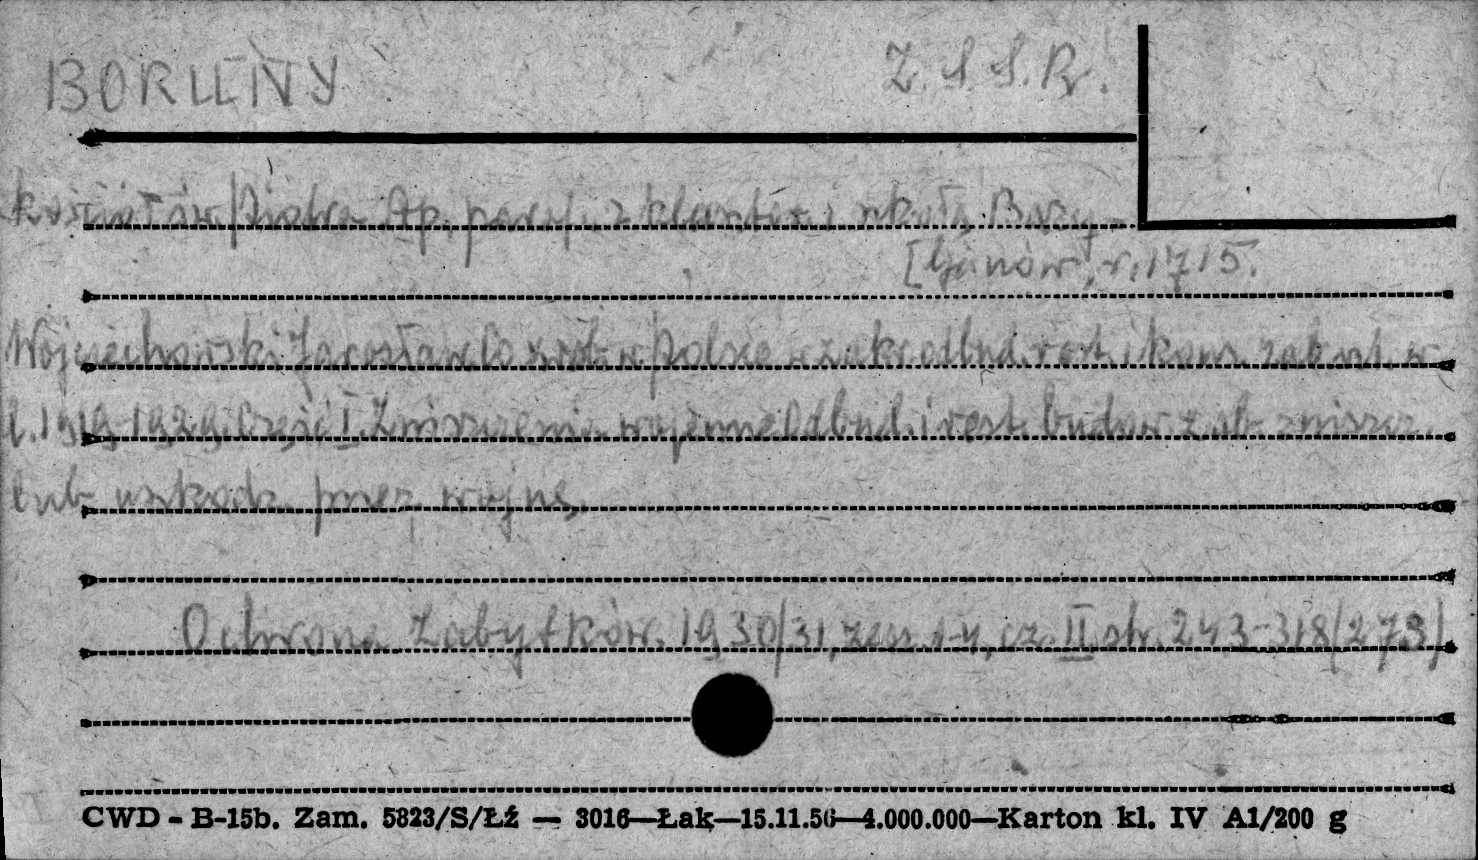 BORUNY Z.S.S.R.
Kościół św. Piotra Ap. paraf. z klaszt. i szkołą Bazy-
[ljanów, r. 1715.
Wojciechowski Jarosław Co zrob. w Polsce w zakr. odbud. rest. i kons. zab. szt. w
l. 1919-1929. Część I. Zniszczenia wojenne Odbud. i rest. budow. zab. zniszcz.
lub uszkodz. przez wojnę.
Ochrona Zabytków. 1930/31, zesz. 1-4, cz. II, str. 243-318/273/
CWD - B-15b. Zam. 5823/S/Łź — 3016—Łak—15.11.56—4.000.000—Karton kl. IV A1/200 g